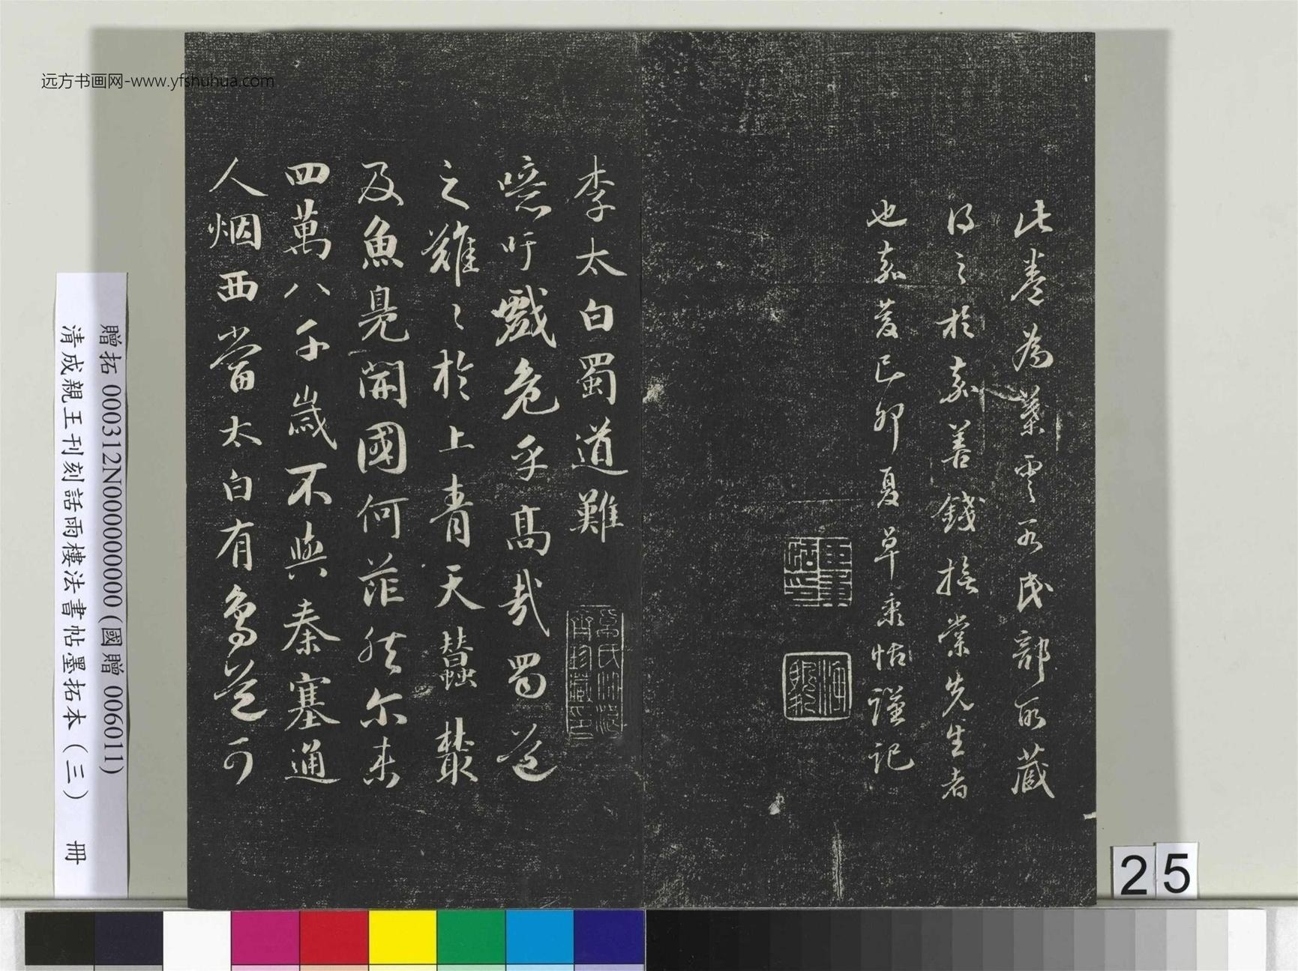 远方书画网-www.yfshuhua.com
此卷為葉雲谷民部所藏
得之於嘉善錢撫棠先生者
也嘉慶己卯夏草永恬謹記
李太白蜀道難
噫吁戲危乎高哉蜀道
之難〻於上青天蠶叢
及魚鳧開國何茫然尔来
四萬八千歲不與秦塞通
人烟西當太白有鳥道可
贈拓 000312N000000000(國贈 006011)
清成親王刊刻話雨樓法書帖墨拓本(三) 冊
25